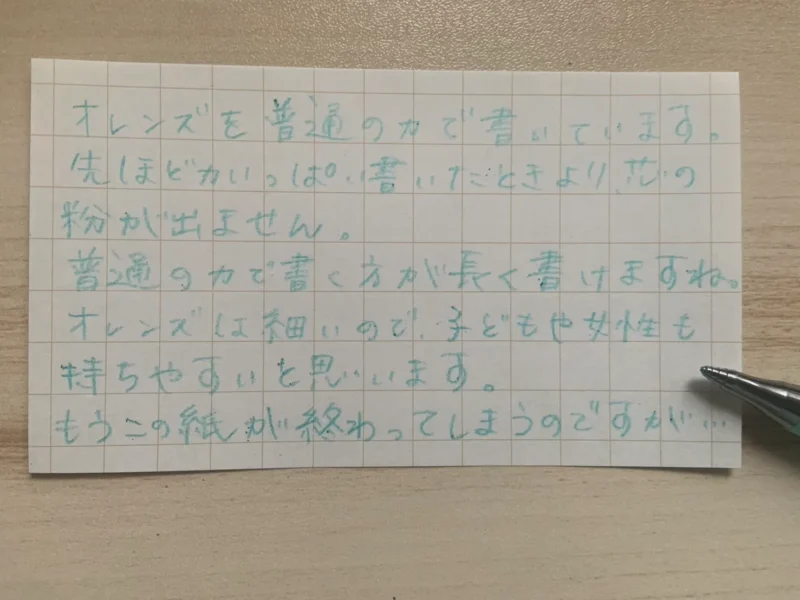 オレンズを普通の力で書いています。
先ほどかいっぱい書いたときより、芯の
粉が出ません。
普通の力で書く方が長く書けますね。
オレンズは細いので、子どもや女性も
持ちやすいと思います。
もうこの紙が終わってしまうのですが…